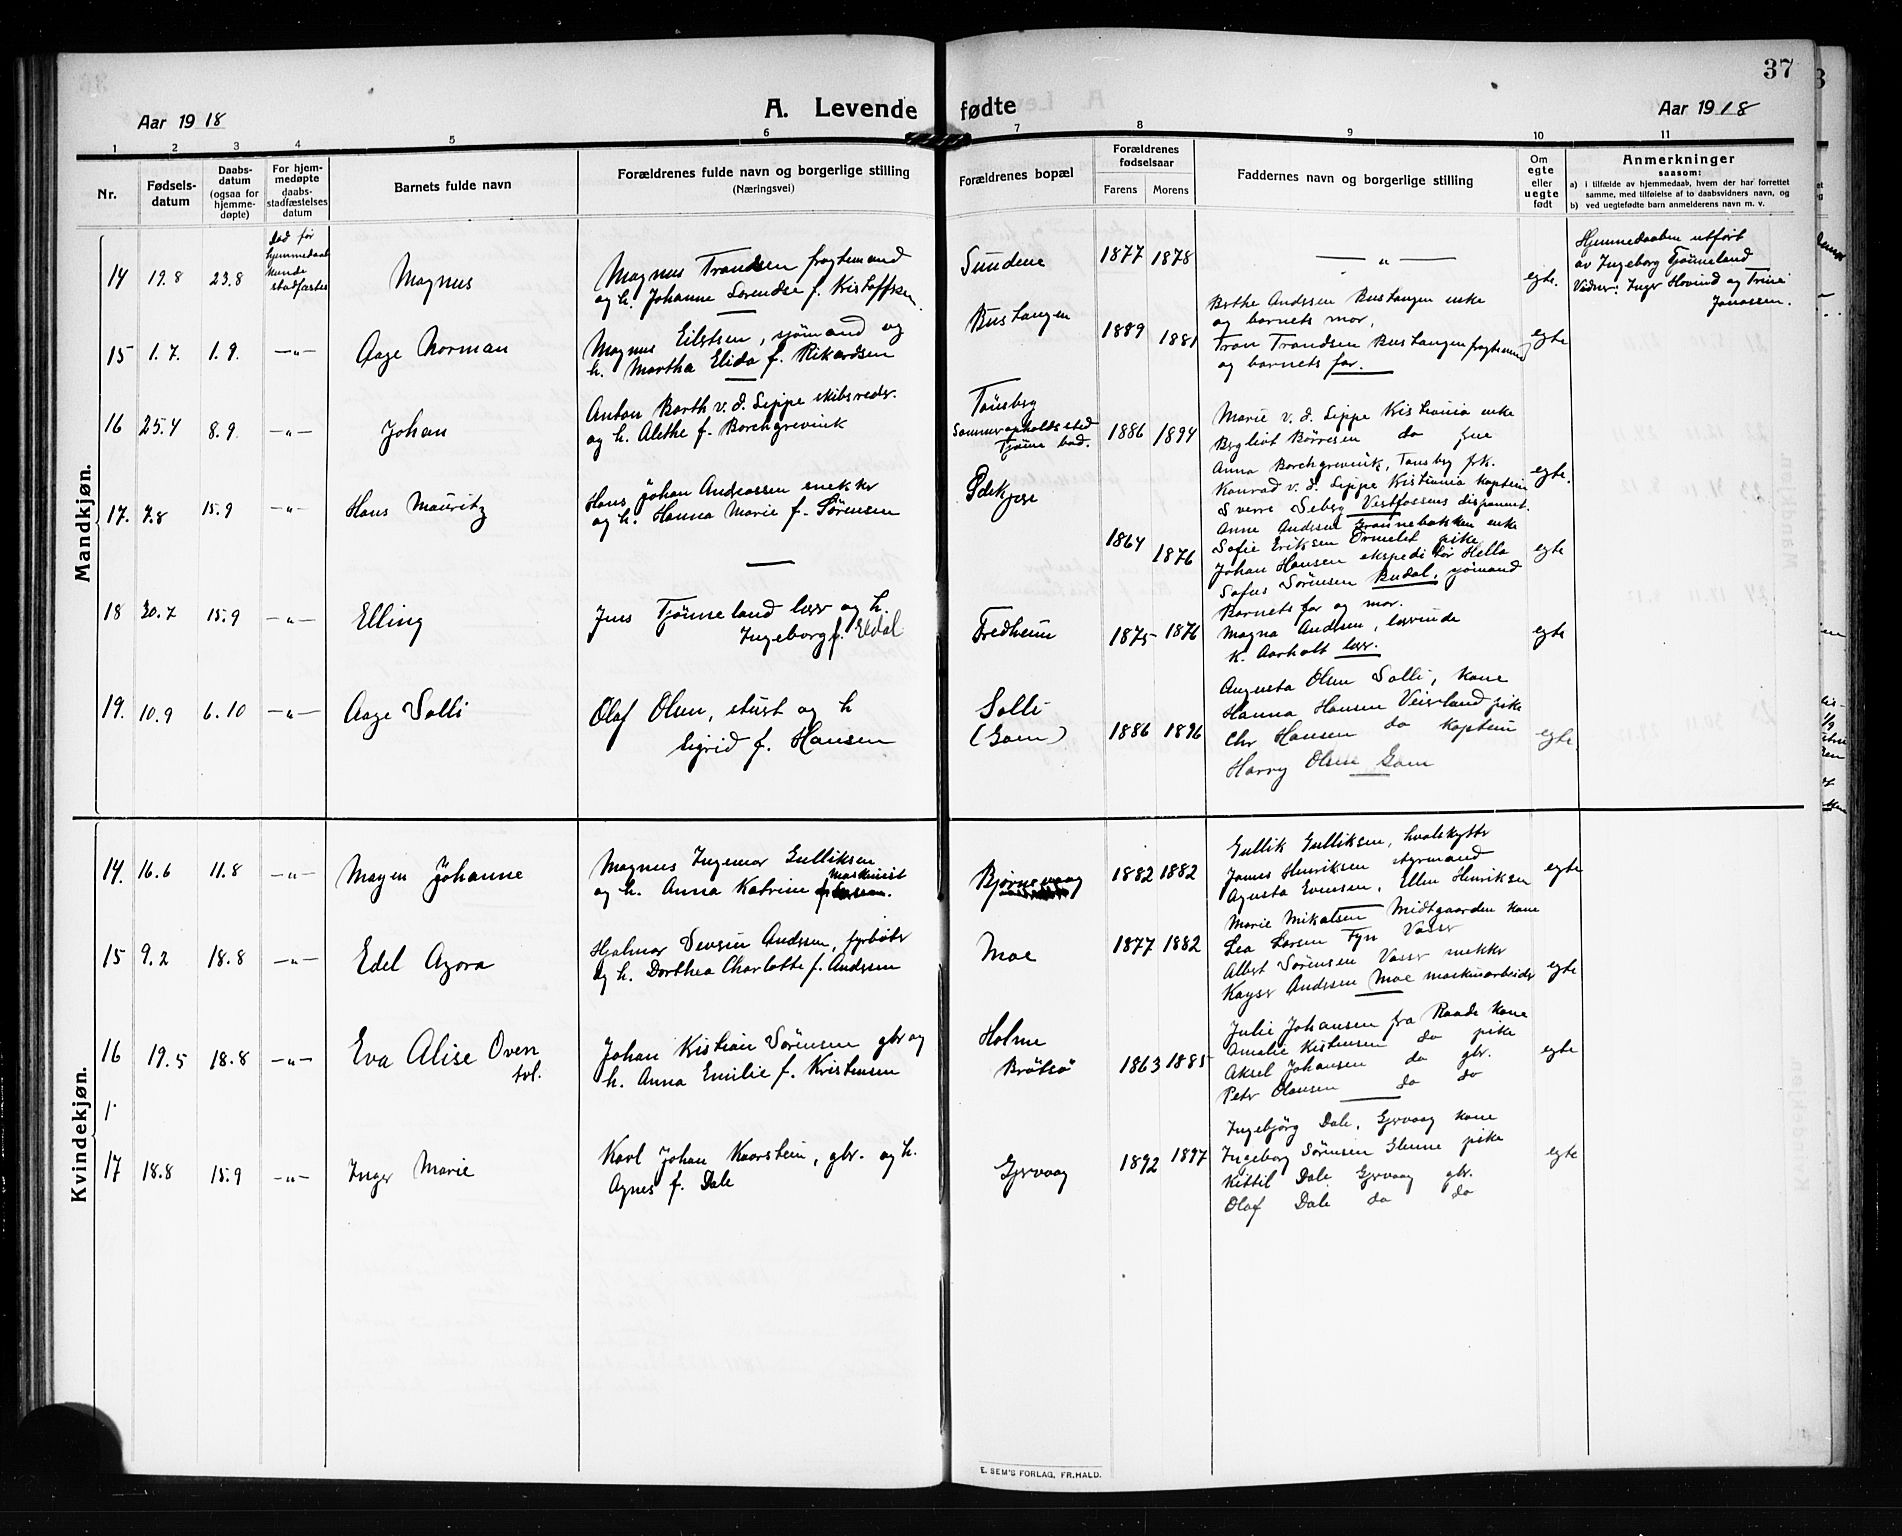 37
Aar 1918
A. Levende fødte
Aar 1918
1 2 3 4 5 6 7 8 9 10 11
Nr.
Fødsels-
datum
Daabs-
datum
(ogsaa for
hjemme-
døpte)
For hjem-
medøpte
daabs-
stadfæstelses
datum
Barnets fulde navn
Forældrenes fulde navn og borgerlige stilling
(Næringsvei)
Forældrenes bopæl
Forældrenes
fødselsaar
Farens Morens
Faddernes navn og borgerlige stilling
Om
egte
eller
uegte
født
Anmerkninger
saasom:
a) i tilfælde av hjemmedaab, hvem der har forrettet
samme, med tilføielse af to daabsvidners navn, og
b) ved uegtefødte barn anmelderens navn m. v.
Mandkjøn.
14 19.8 23.8
Død før
hjemmedaab
kunde
stadfæstes
Magnus
Magnus Trandsen fragtemand
og h. Johanne Lorendse f. Kistoffsen
Sundene
1877 1878
— „ —
egte.
Hjemmedaaben utført
av Ingeborg Tjømeland
Vidner: Inger Hovind og Trine
Jonassen.
15 1.7. 1.9. —„—
Aage Norman
Magnus Eilertsen, sjømand og
h. Martha Elida f. Rikardsen
Bustangen
1889 1881
Berthe Andersen Bustangen enke
og barnets mor.
Tron Trandsen Bustangen fragtemand
og barnets far.
egte
16 25.4 8.9. —„—
Johan
Anton Barth v. d. Lippe skibsreder.
og h. Alethe f. Borchgrevink
Tönsberg
Sommeropholdssted
Tjøme bad.
1886 1894
Marie v. d. Lippe Kristiania enke
Bergliot Börresen do frue
Anna Borchgrevink, Tønsberg frk.
Konrad v. d. Lippe Kristiania kaptein
Sverre Seberg Vestfossens disponent.
egte.
17. 7.8 15.9 —„—
Hans Mauritz
Hans Johan Andreassen snekker
og h. Hanna Marie f. Sørensen
1864 1876
Anne Andersen Grønnebakken enke
Sofie Eriksen Ormelet pike
Johan Hansen ekspeditør Hella
Sofus Sörensen Budal, sjømand
egte
18 30.7 15.9 —„—
Elling
Jens Tjømeland lærer og h.
Ingeborg f. Eldal
Fredheim
1875 1876
Barnets far og mor.
Magna Andersen, lærerinde
K. Aarholt lærer.
egte
19. 10.9 6.10 —„—
Aage Solli
Olaf Olsen, stuert og h
Sigrid f. Hansen
Solli
(Gom)
1886 1896
Augusta Olsen Solli, kone
Hanna Hansen Veierland pike
Chr Hansen do kaptein
Harry Olsen Gom
egte
Kvindekjøn.
14. 16.6 11.8 —„—
Magen Johanne
Magnus Ingemar Gulliksen
maskinist
og h. Anna Katrine
Bjørnevaag
1882 1882
Gullik Gulliksen, hvalskytter
James Henriksen styrmand
Agusta Evensen, Ellen Henriksen
egte
15 9.2 18.8 —„—
Edel Agora
Hjalmar Severin Andersen, fyrbøter
og h. Dorthea Charlotte f. Andersen
Moe
1877 1882
Marie Mikalsen Midtgaarden kone
Lea Larsen Fyn Vasser
Albert Sørensen Vasser snekker
Kayser Andersen Moe maskinarbeider
egte
16 19.5 18.8 —„—
Eva Alise Oven
tvl.
Johan Kristian Sörensen gbr og
h. Anna Emilie f. Kristensen
Holme
Brötsø
1863 1885
Julie Johansen fra Raade kone
Amalie Kristensen do pike
Aksel Johansen do gbr.
Peter Olausen do do
egte
1
17 18.8 15.9 —„—
Inger Marie
Karl Johan Kaarstein, gbr. og h.
Agnes f. Dale
Gjervaag
1892 1897
Ingebjörg Dale, Gjervaag kone
Ingeborg Sörensen Glenne pike
Kittil Dale Gjervaag gbr.
Olaf Dale do do
egte
E. SEM'S FORLAG, FR.HALD.